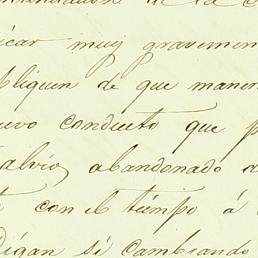 icar muy gravemen
bliquen de que maner
uevo conducto que p
alvio, abandonado a
con el tiempo á
digan si cambiando